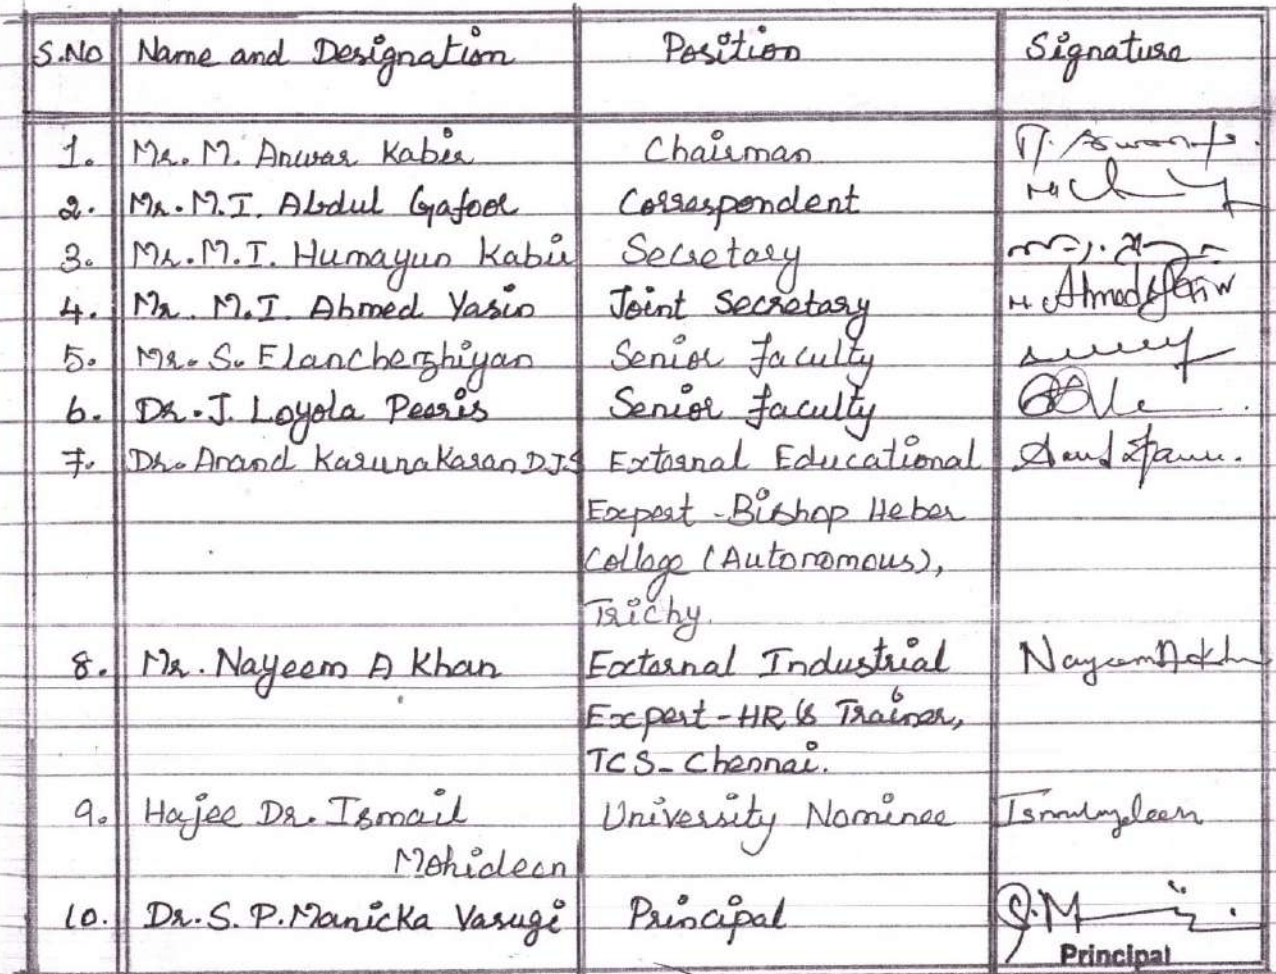 S.No Name and Designation Position Signature
1. Mr. M. Anwar Kabir Chairman
2. Mr. M.I. Abdul Gafoor Correspondent
3. Mr. M.I. Humayun Kabir Secretary
4. Mr. M.I. Ahmed Yasin Joint Secretary
5. Mr. S. Elancherzhiyan Senior faculty
6. Dr. J. Loyola Peeris Senior faculty
7. Dr. Anand Karunakaran D.J.S External Educational
Expert - Bishop Heber
College (Autonomous),
Trichy.
8. Mr. Nayeem A Khan External Industrial
Expert - HR & Trainer,
TCS - Chennai.
9. Hajee Dr. Ismail University Nominee
Mohideen
10. Dr. S. P. Manicka Vasugi Principal
Principal